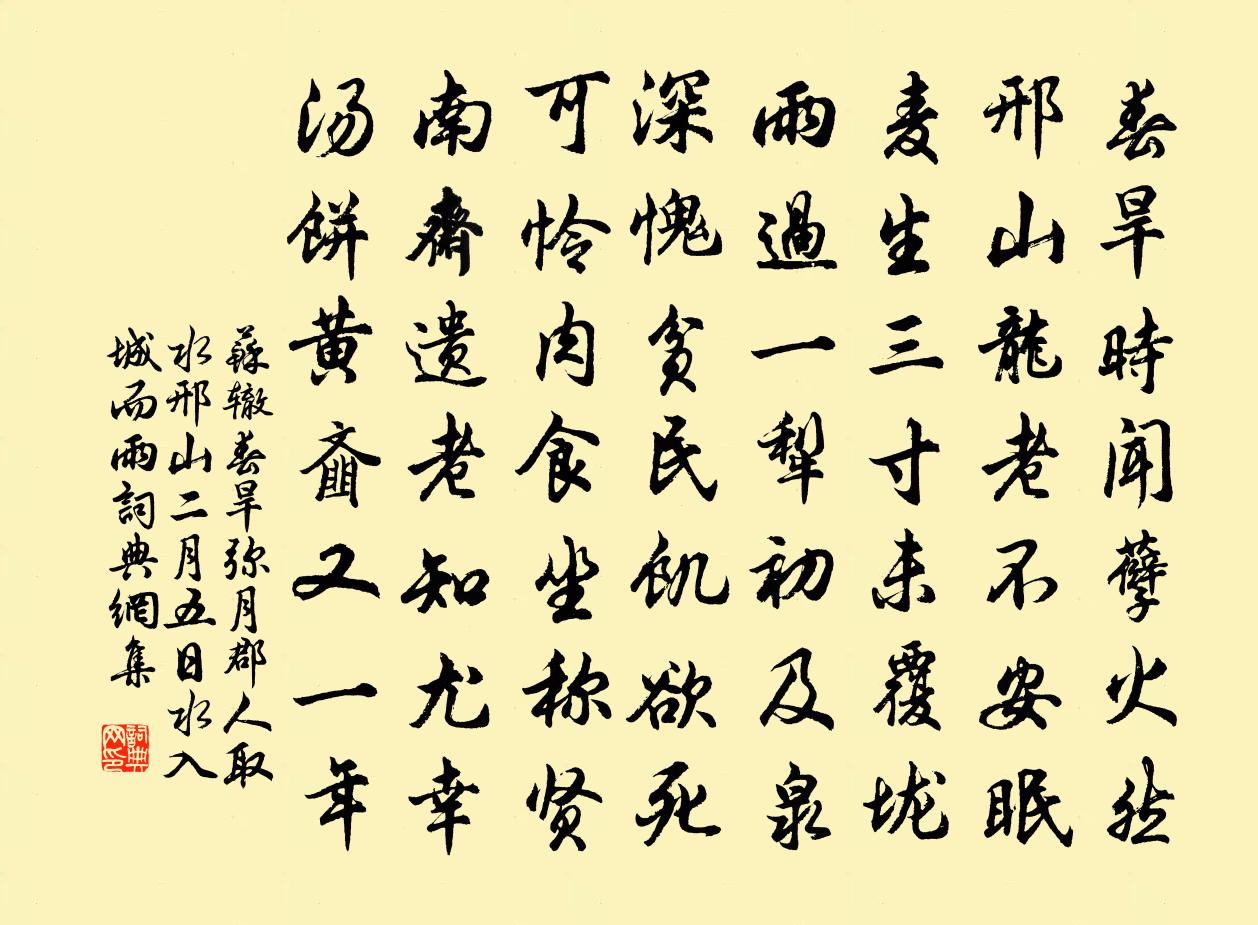 春旱時闻孽火然
邢山龍老不安眠
麦生三寸未覆垅
雨過一犁初及泉
深愧贫民飢欲死
可怜肉食坐称贤
南齋遗老知尤幸
汤餅黄齑又一年
蘇辙春旱弥月郡人取
水邢山二月五日水入
城而雨詞典網集
詞典网印